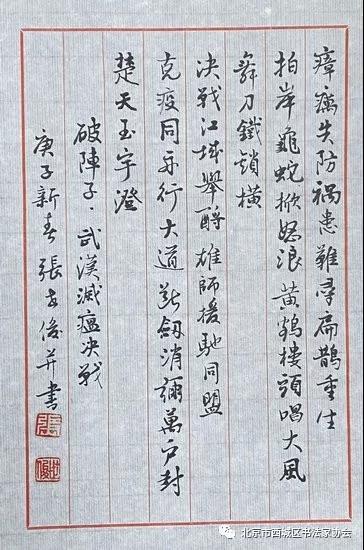 瘴癘失防祸患難尋扁鵲重生
拍岸龜蛇掀怒浪黄鶴樓頭唱大風
舞刀鐵鎖橫
决戰江城舉酹雄師援馳同盟
克疫同舟行大道劍消彌萬户封
楚天玉宇澄
破陣子·武漢滅瘟决戰
庚子新春張俊并書
北京市西城区书法家协会